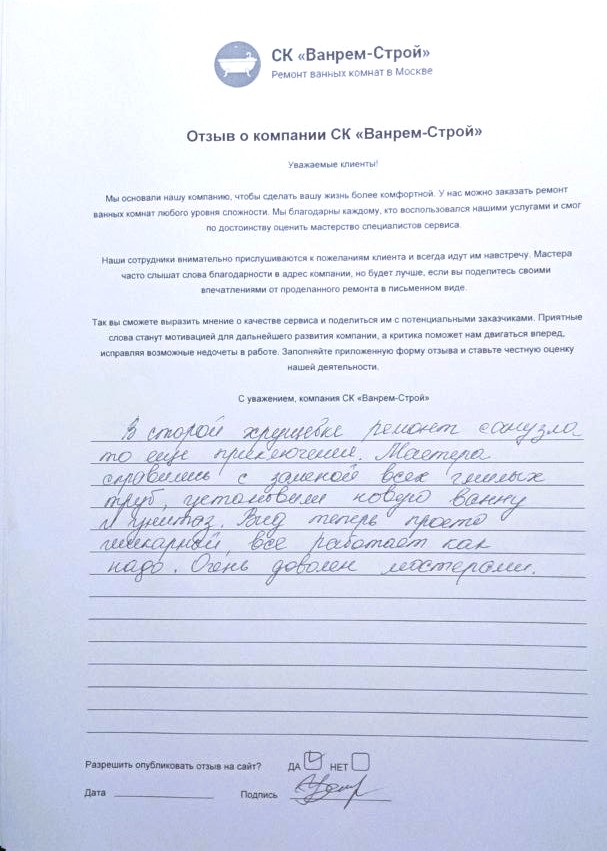 СК «Ванрем-Строй»
Ремонт ванных комнат в Москве
Отзыв о компании СК «Ванрем-Строй»
Уважаемые клиенты!
Мы основали нашу компанию, чтобы сделать вашу жизнь более комфортной. У нас можно заказать ремонт
ванных комнат любого уровня сложности. Мы благодарны каждому, кто воспользовался нашими услугами и смог
по достоинству оценить мастерство специалистов сервиса.
Наши сотрудники внимательно прислушиваются к пожеланиям клиента и всегда идут им навстречу. Мастера
часто слышат слова благодарности в адрес компании, но будет лучше, если вы поделитесь своими
впечатлениями от проделанного ремонта в письменном виде.
Так вы сможете выразить мнение о качестве сервиса и поделиться им с потенциальными заказчиками. Приятные
слова станут мотивацией для дальнейшего развития компании, а критика поможет нам двигаться вперед,
исправляя возможные недочеты в работе. Заполняйте приложенную форму отзыва и ставьте честную оценку
нашей деятельности.
С уважением, компания СК «Ванрем-Строй»
В старой хрущевке ремонт санузла
то еще приключение. Мастера
справились с заменой всех гнилых
труб, установили новую ванну
и унитаз. Вид теперь просто
шикарный, все работает как
надо. Очень доволен мастерами.
Разрешить опубликовать отзыв на сайт? ДА НЕТ
Дата Подпись